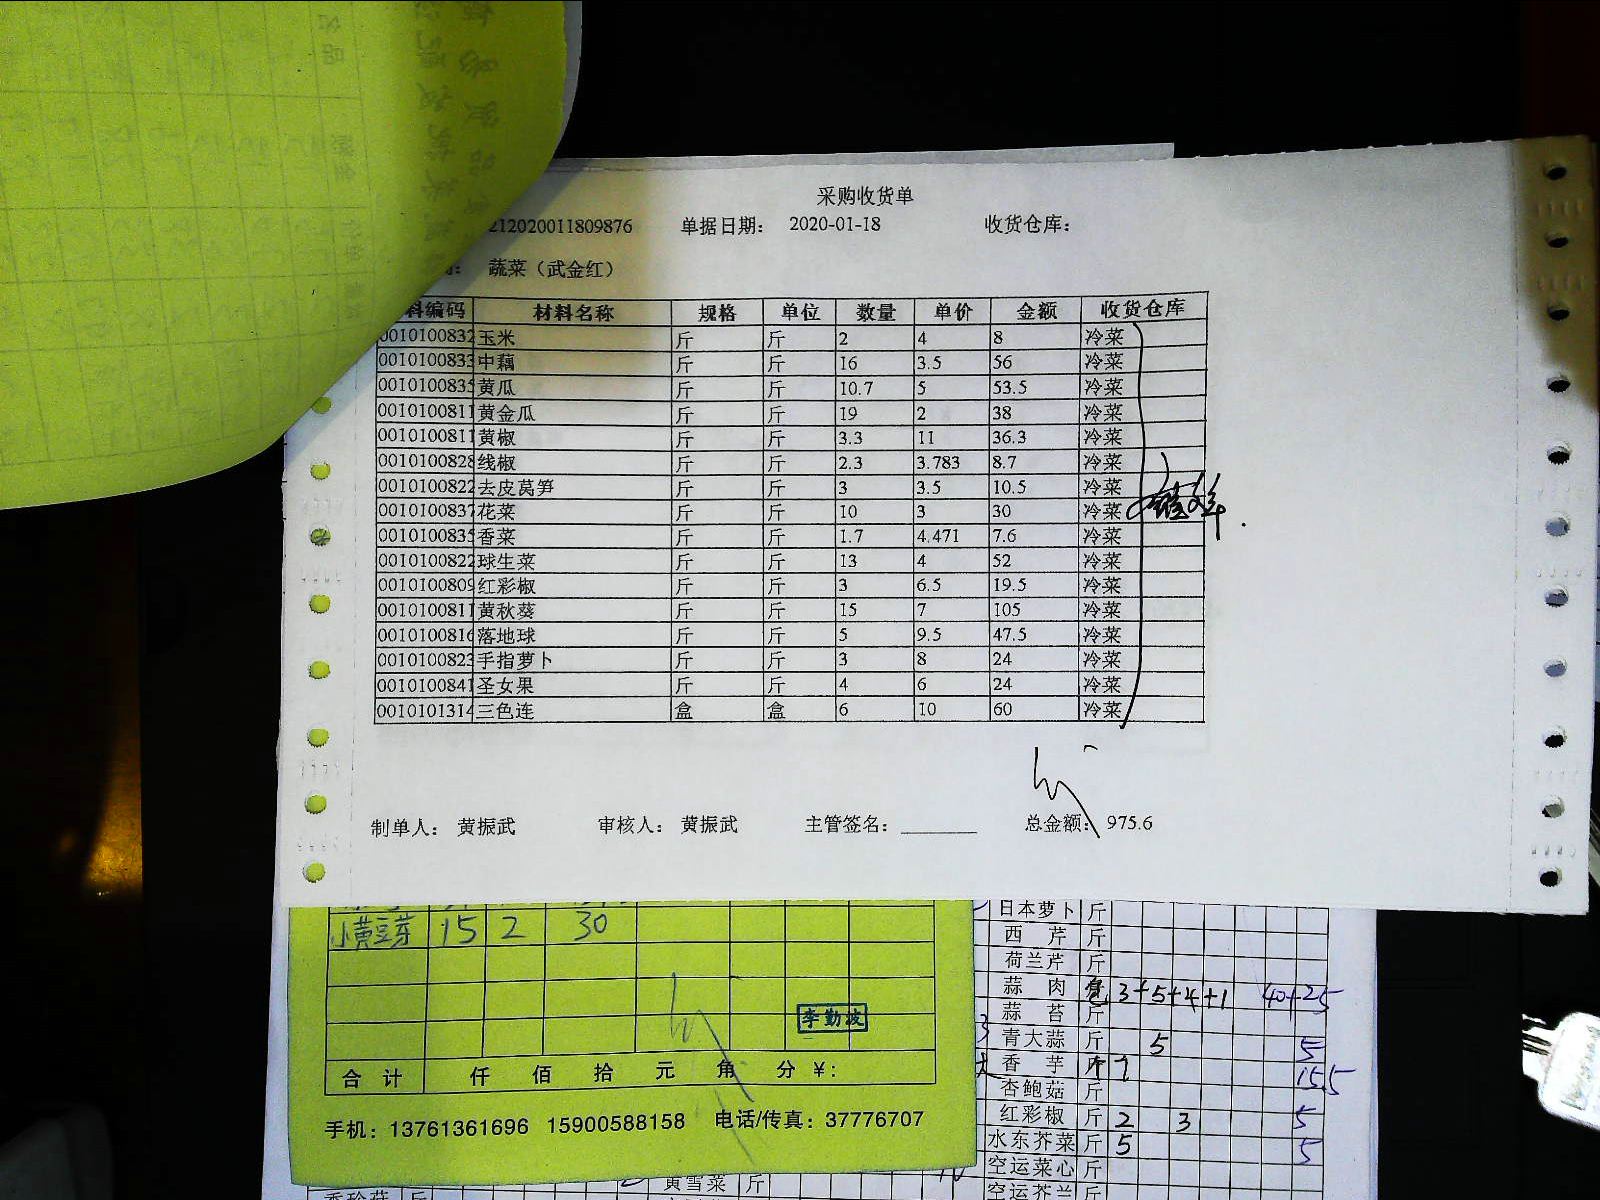 采购收货单
212020011809876 单据日期： 2020-01-18 收货仓库：
蔬菜（武金红）
料编码 材料名称 规格 单位 数量 单价 金额 收货仓库
0010100832 玉米 斤 斤 2 4 8 冷菜
0010100833 中藕 斤 斤 16 3.5 56 冷菜
0010100835 黄瓜 斤 斤 10.7 5 53.5 冷菜
0010100811 黄金瓜 斤 斤 19 2 38 冷菜
0010100811 黄椒 斤 斤 3.3 11 36.3 冷菜
0010100828 线椒 斤 斤 2.3 3.783 8.7 冷菜
0010100822 去皮莴笋 斤 斤 3 3.5 10.5 冷菜
0010100837 花菜 斤 斤 10 3 30 冷菜
0010100835 香菜 斤 斤 1.7 4.471 7.6 冷菜
0010100822 球生菜 斤 斤 13 4 52 冷菜
0010100809 红彩椒 斤 斤 3 6.5 19.5 冷菜
0010100811 黄秋葵 斤 斤 15 7 105 冷菜
0010100816 落地球 斤 斤 5 9.5 47.5 冷菜
0010100823 手指萝卜 斤 斤 3 8 24 冷菜
0010100841 圣女果 斤 斤 4 6 24 冷菜
0010101314 三色连 盒 盒 6 10 60 冷菜
制单人： 黄振武 审核人： 黄振武 主管签名： 总金额： 975.6
小黄豆芽 15 2 30
李勤波
合计 仟 佰 拾 元 角 分 ¥:
手机：13761361696 15900588158 电话/传真：37776707
日本萝卜 斤
西芹 斤
荷兰芹 斤
蒜肉 3+5+4+1 40+25
蒜苔 斤
青大蒜 斤 5 5
香芋 15.5
杏鲍菇 斤
红彩椒 斤 2 3 5
水东芥菜 斤 5 5
空运菜心 斤
空运芥兰 斤
黄雪菜 斤